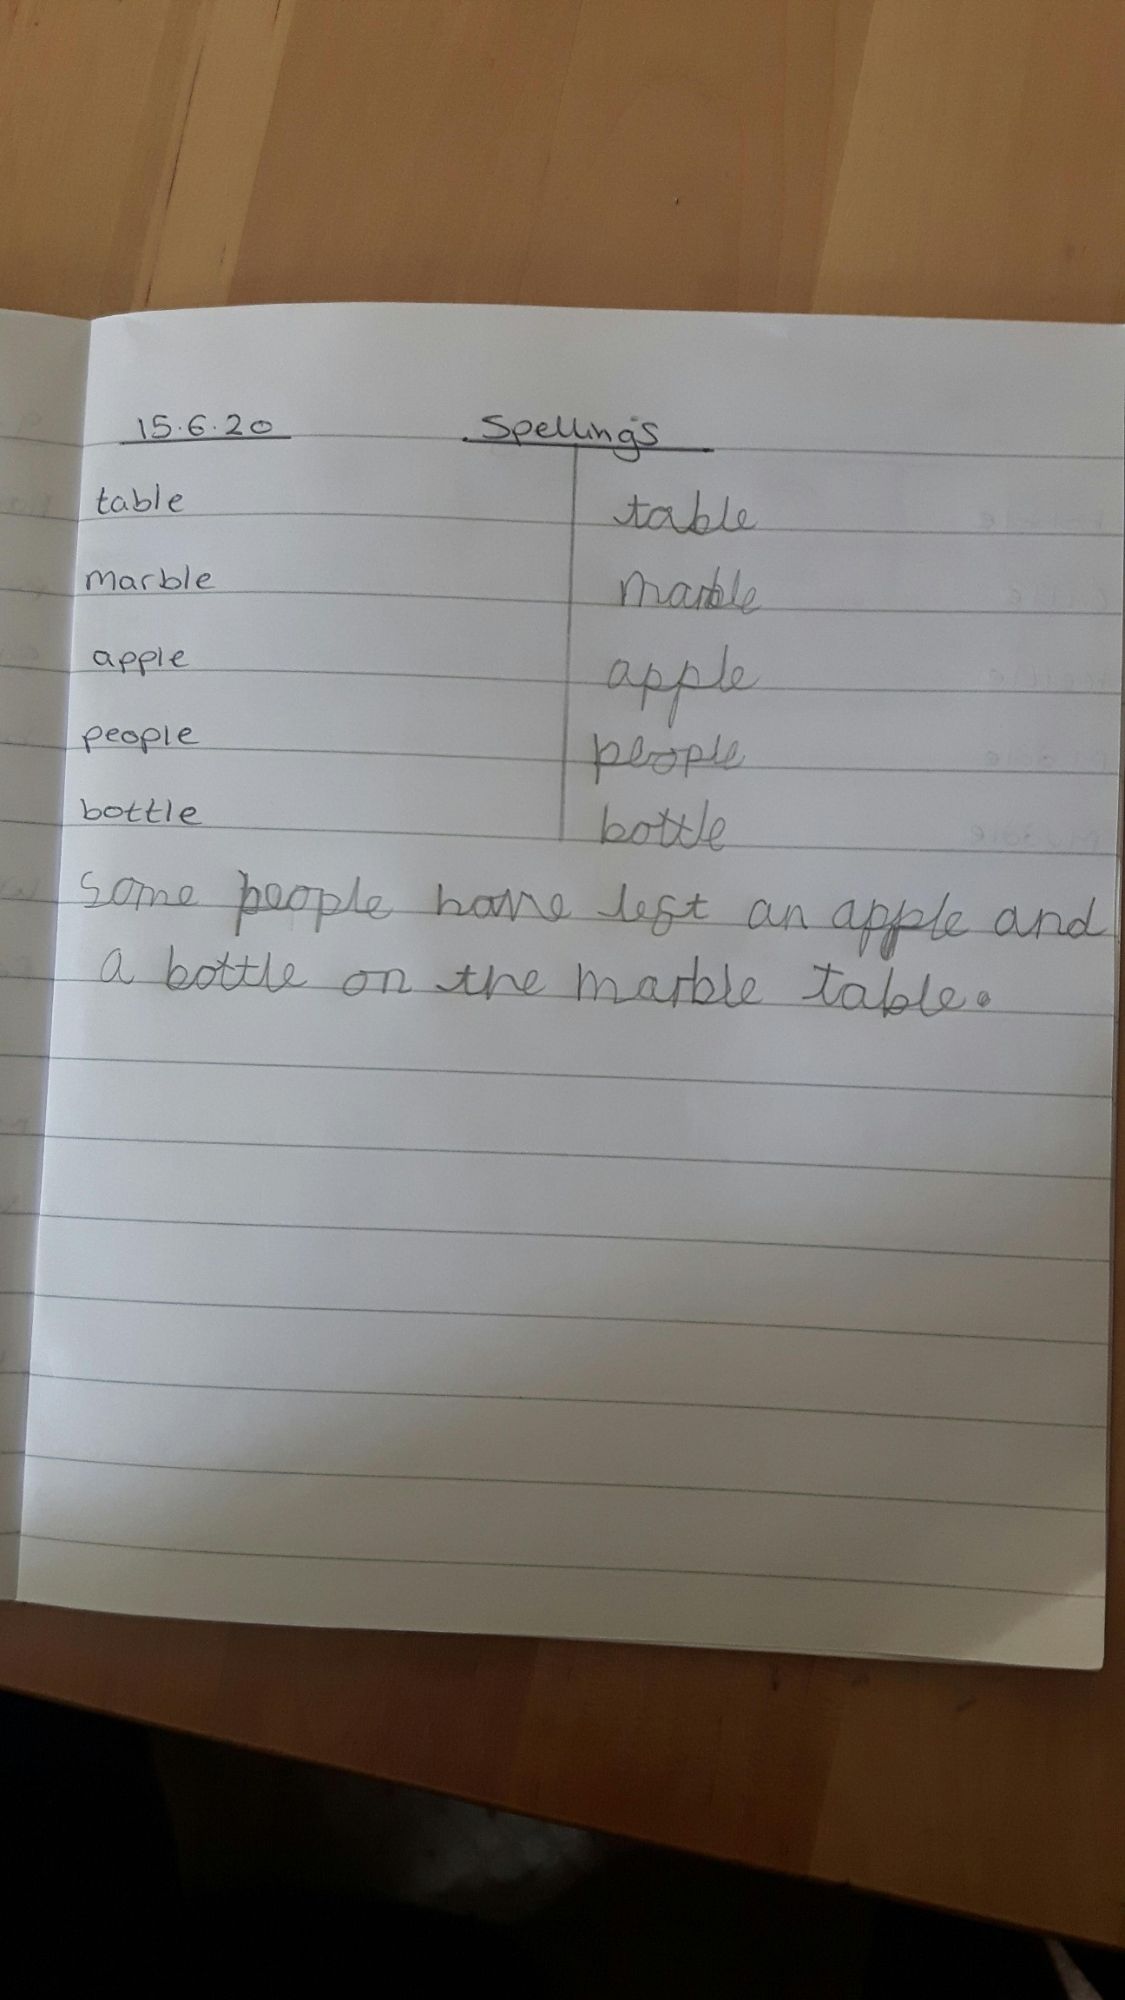 15.6.20 Spellings
table table
marble marble
apple apple
people people
bottle bottle
Some people have left an apple and
a bottle on the marble table.